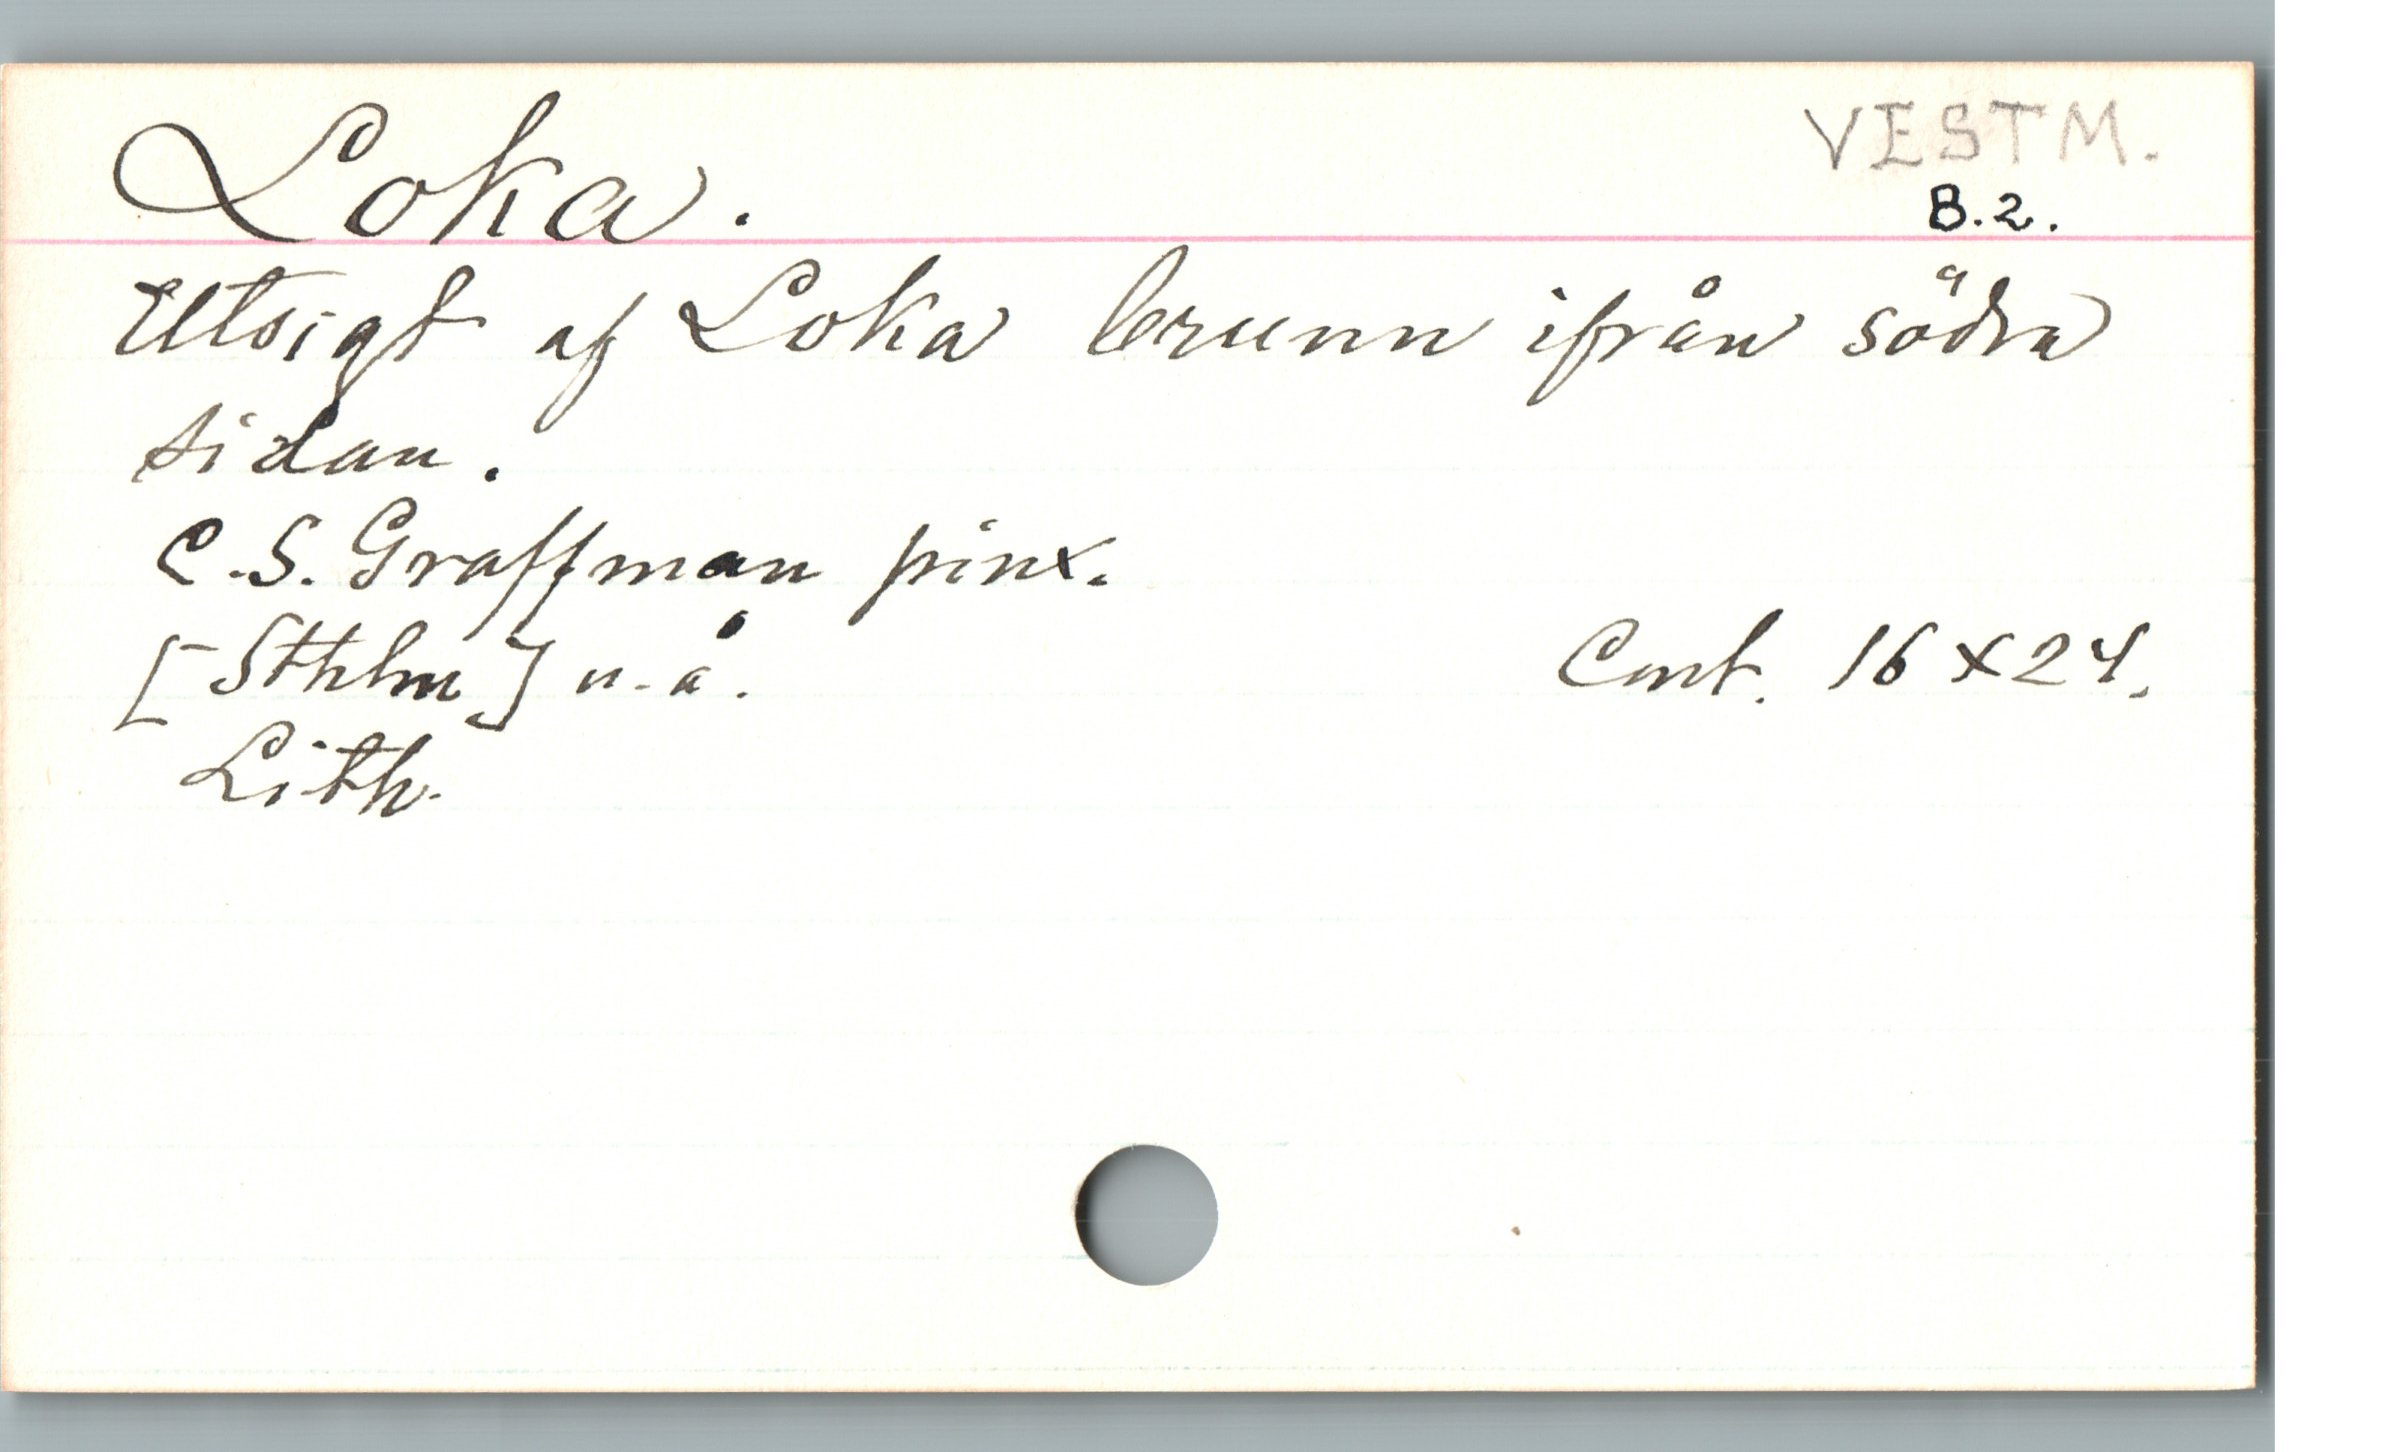 Loka.
VESTM.
B.2.
Utsigt af Loka brunn ifrån södra
sidan.
C.S. Graffman pinx.
[Sthlm] u.å.
Cart. 16 x 24.
Lith.